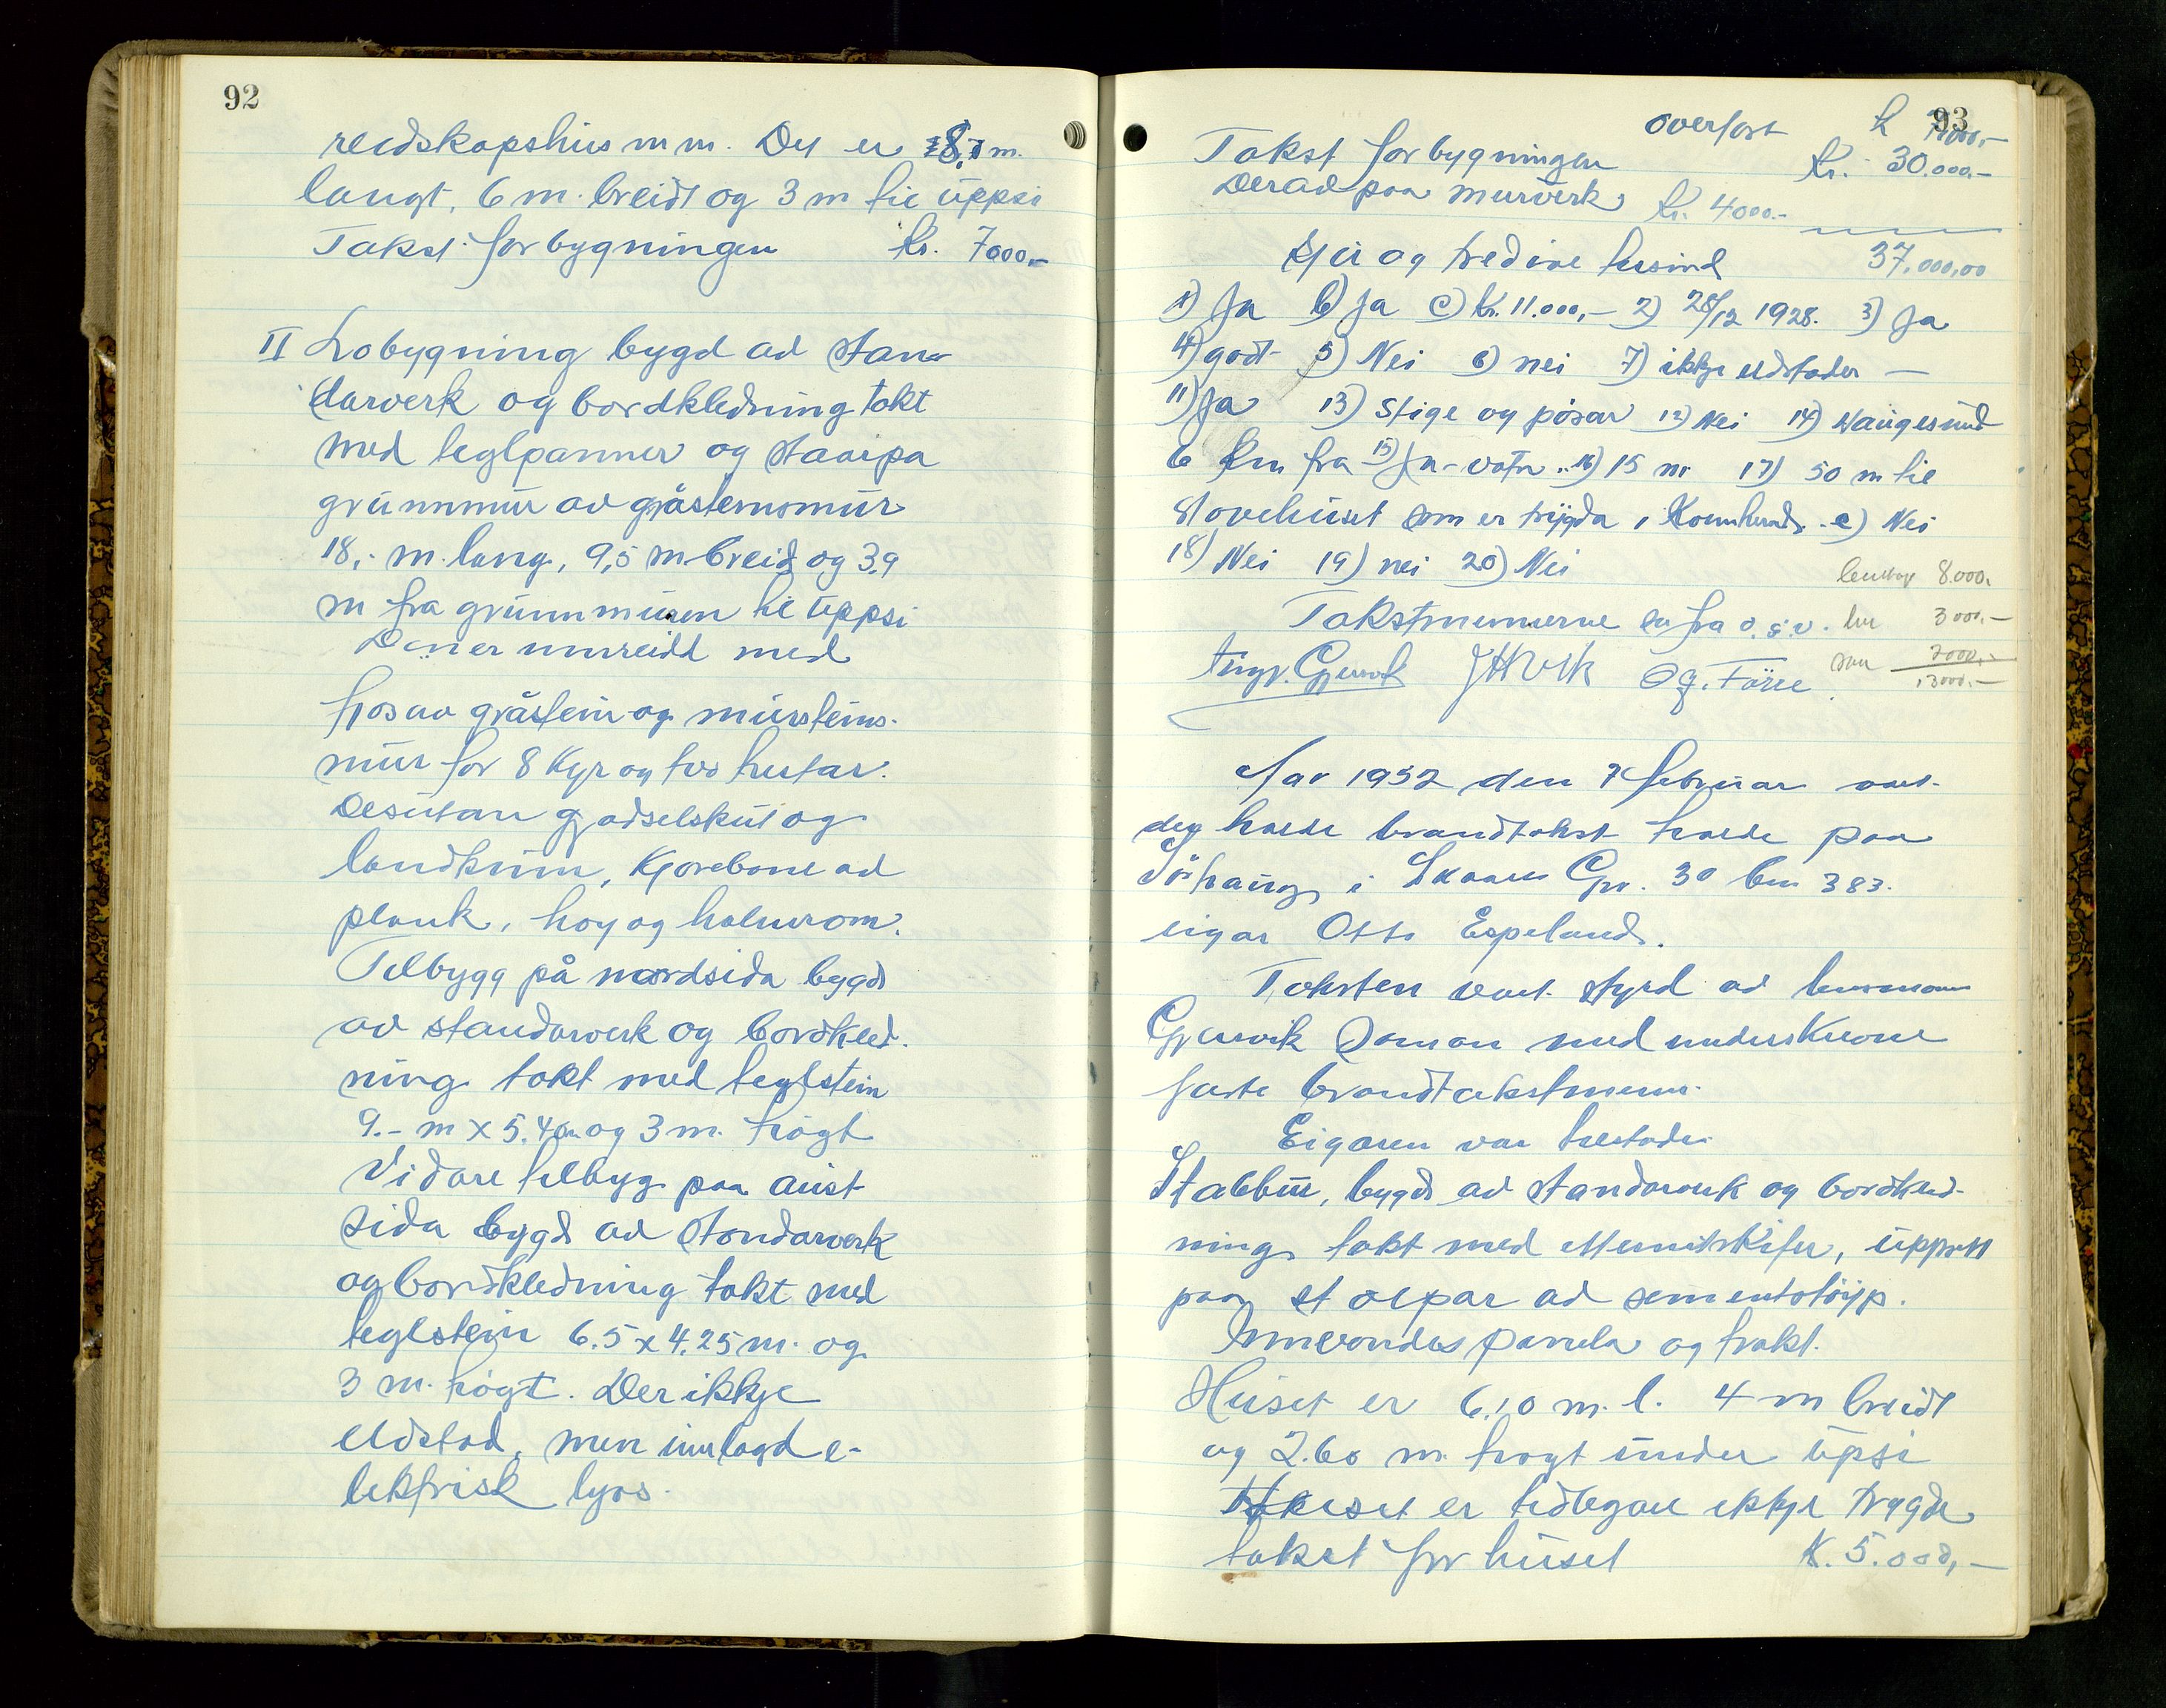 92
reidskapshus m m. Det er 8,7 m.
langt, 6 m. breidt og 3 m til uppsi
Takst for bygningen kr. 7000,-
II Lobygning bygd av stan-
darverk og bordkledning takt
med teglpanner og staar paa
grunnmur av gråsteinsmur
18,- m. lang, 9,5 m breid og 3,9
m fra grunnmuren til uppsi
Den er innreidd med
fjos av gråstein og mursteins-
mur for 8 kyr og två hestar.
Desutan gjødselskut og
landkum, kjørebane av
plank, høy og halmrom.
Tilbygg på nordsida bygd
av standarverk og bordkled-
ning takt med teglstein
9.- m x 5.40 m og 3 m. høgt
Vidare tilbyg paa aust
sida bygd av standarverk
og bordkledning takt med
teglstein 6.5 x 4.25 m. og
3 m. høgt. Der ikkje
eldstad, men innlagd e-
lektrisk lyos.
93
overført k 7000,-
Takst for bygningen kr. 30.000,-
Derav paa murverk kr. 4000.-
Sju og tredive tusind 37.000,00
a) Ja b) Ja c) kr. 11.000,- 2) 28/12 1928. 3) Ja
4) godt 5) Nei 6) nei 7) ikkje eldstader —
11) Ja 13) Stige og pøsar 12) Nei 14) Haugesund
6 km fra 15) Ja - vatn. 16) 15 m 17) 50 m til
Stovehuset som er trygda i Kornkred. e) Nei
18) Nei 19) nei 20) Nei
8.000.
Takstmennerne er fra o.s.v. 3000,-
Ingv. Gjervik J H Vik Og. Førre 2000,-
13000,-
Aar 1952 den 7 februar vart
dey halde brandtakst halde paa
Sørhaug i Skaare Gnr. 30 bnr 383.
eigar Otto Espeland.
Taksten vart styrd av lensmann
Gjervik saman med underskrevne
faste brandtakstmenn.
Eigaren var tilstade.
Stabbur, bygd av standarverk og bordkled-
ning takt med eternitskifer, uppsett
paa stolpar av sementstøyp.
Innvendes panela og trakt.
Huset er 6.10 m. l. 4 m breidt
og 2.60 m. høgt under upsi
Huset er tidlegare ikkje trygda
takst for huset K. 5.000,-